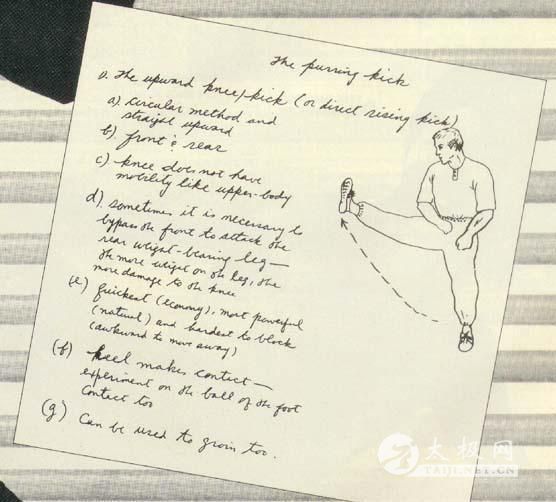 The purring kick
The upward knee/kick (or direct rising kick)
a). Circular method and
straight upward
b) front & rear
c) knee does not have
motility like upper-body
d). sometimes it is necessary to
bypass the front to attack the
rear weight-bearing leg —
the more weight on the leg, the
more damage to the knee
(e) quickest (economy), most powerful
(natural) and hardest to block
(awkward to move away)
(f) heel makes contact —
experiment on the ball of the foot
contact too
(g) Can be used to groin too.
太极网
TAIJI.NET.CN